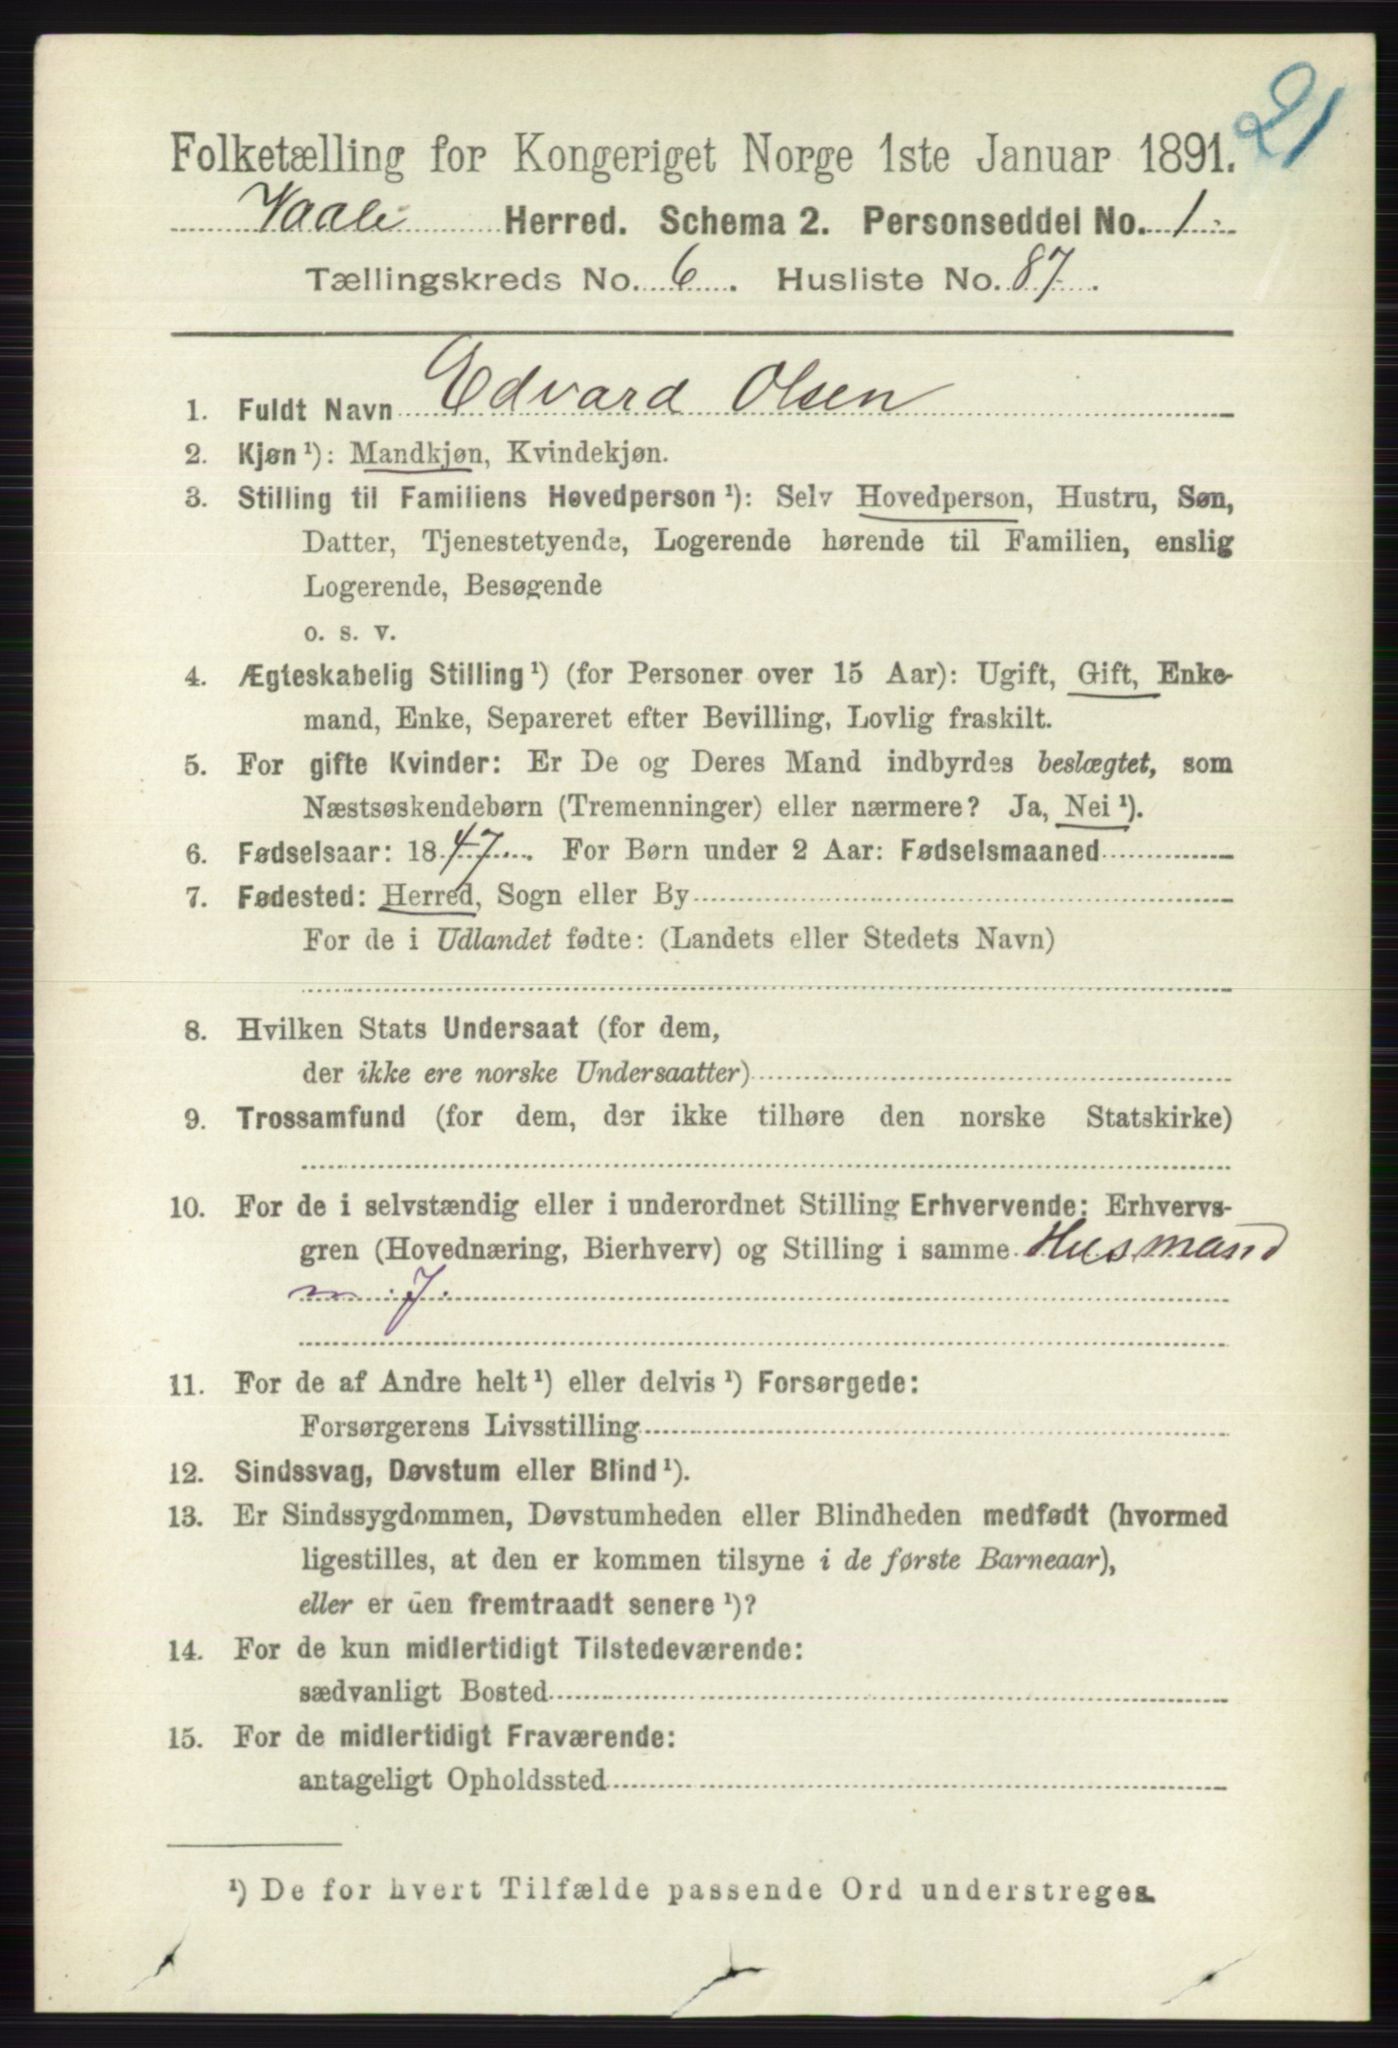 21
Folketælling for Kongeriget Norge 1ste Januar 1891.
Vaale Herred. Schema 2. Personseddel No. 1.
Tællingskreds No. 6. Husliste No. 87.
1. Fuldt Navn Edvard Olsen
2. Kjøn ¹): Mandkjøn, Kvindekjøn.
3. Stilling til Familiens Hovedperson ¹): Selv Hovedperson, Hustru, Søn,
Datter, Tjenestetyende, Logerende hørende til Familien, enslig
Logerende, Besøgende
o. s. v.
4. Ægteskabelig Stilling ¹) (for Personer over 15 Aar): Ugift, Gift, Enke-
mand, Enke, Separeret efter Bevilling, Lovlig fraskilt.
5. For gifte Kvinder: Er De og Deres Mand indbyrdes beslægtet, som
Næstsøskendebørn (Tremenninger) eller nærmere? Ja, Nei ¹).
6. Fødselsaar: 1847. For Børn under 2 Aar: Fødselsmaaned
7. Fødested: Herred, Sogn eller By
For de i Udlandet fødte: (Landets eller Stedets Navn)
8. Hvilken Stats Undersaat (for dem,
der ikke ere norske Undersaatter)
9. Trossamfund (for dem, der ikke tilhøre den norske Statskirke)
10. For de i selvstændig eller i underordnet Stilling Erhvervende: Erhvervs-
gren (Hovednæring, Bierhverv) og Stilling i samme Husmand
m. J.
11. For de af Andre helt ¹) eller delvis ¹) Forsørgede:
Forsørgerens Livsstilling
12. Sindssvag, Døvstum eller Blind ¹).
13. Er Sindssygdommen, Døvstumheden eller Blindheden medfødt (hvormed
ligestilles, at den er kommen tilsyne i de første Barneaar),
eller er den fremtraadt senere ¹)?
14. For de kun midlertidigt Tilstedeværende:
sædvanligt Bosted
15. For de midlertidigt Fraværende:
antageligt Opholdssted
¹) De for hvert Tilfælde passende Ord understreges.